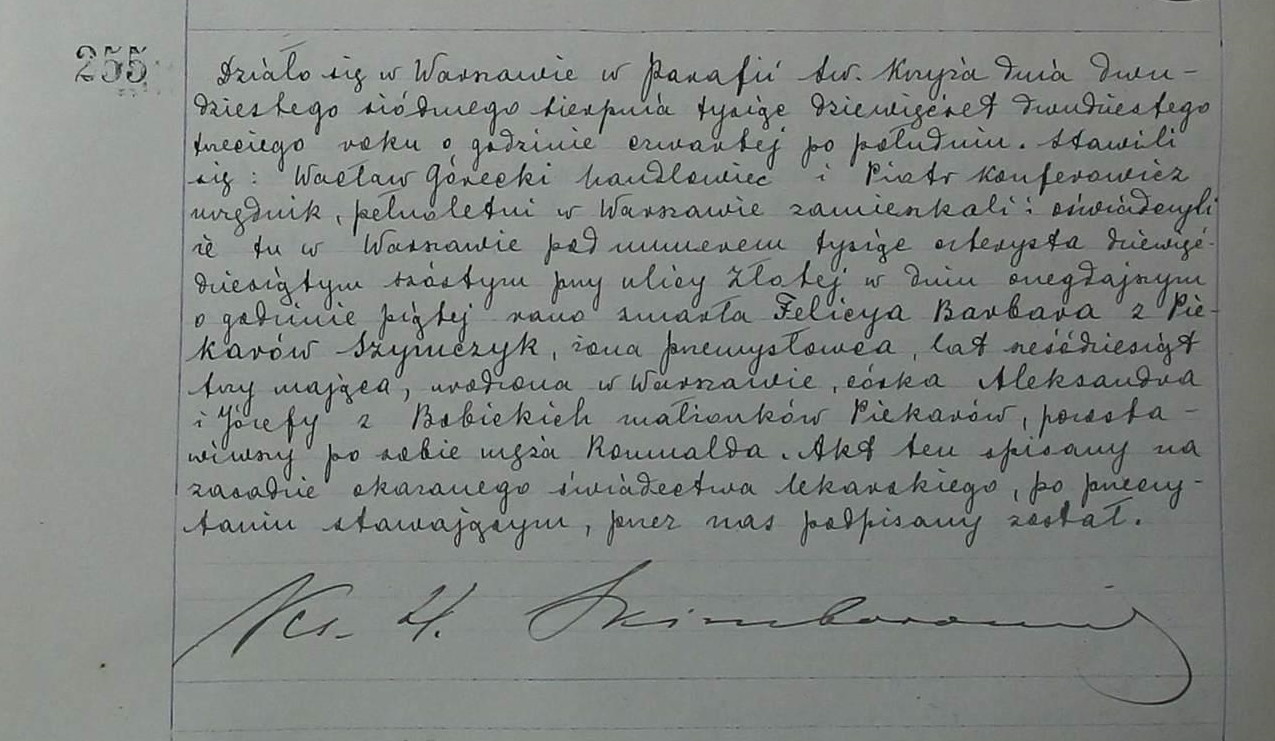 255
Działo się w Warszawie w Parafii św. Krzyża dnia dwu-
dziestego siódmego sierpnia tysiąc dziewięćset dwudziestego
trzeciego roku o godzinie czwartej po południu. Stawili
się: Wacław Górecki handlowiec i Piotr Konferowicz
urzędnik, pełnoletni w Warszawie zamieszkali i oświadczyli
że tu w Warszawie pod numerem tysiąc czterysta dziewięć-
dziesiątym szóstym przy ulicy Złotej w dniu onegdajszym
o godzinie piątej rano zmarła Felicya Barbara z Pie-
karów Szymczyk, żona przemysłowca, lat sześćdziesiąt
trzy mająca, urodzona w Warszawie, córka Aleksandra
i Józefy z Babickich małżonków Piekarów, pozosta-
wiwszy po sobie męża Romualda. Akt ten spisany na
zasadzie okazanego świadectwa lekarskiego, po przeczy-
taniu stawającym, przez nas podpisany został.